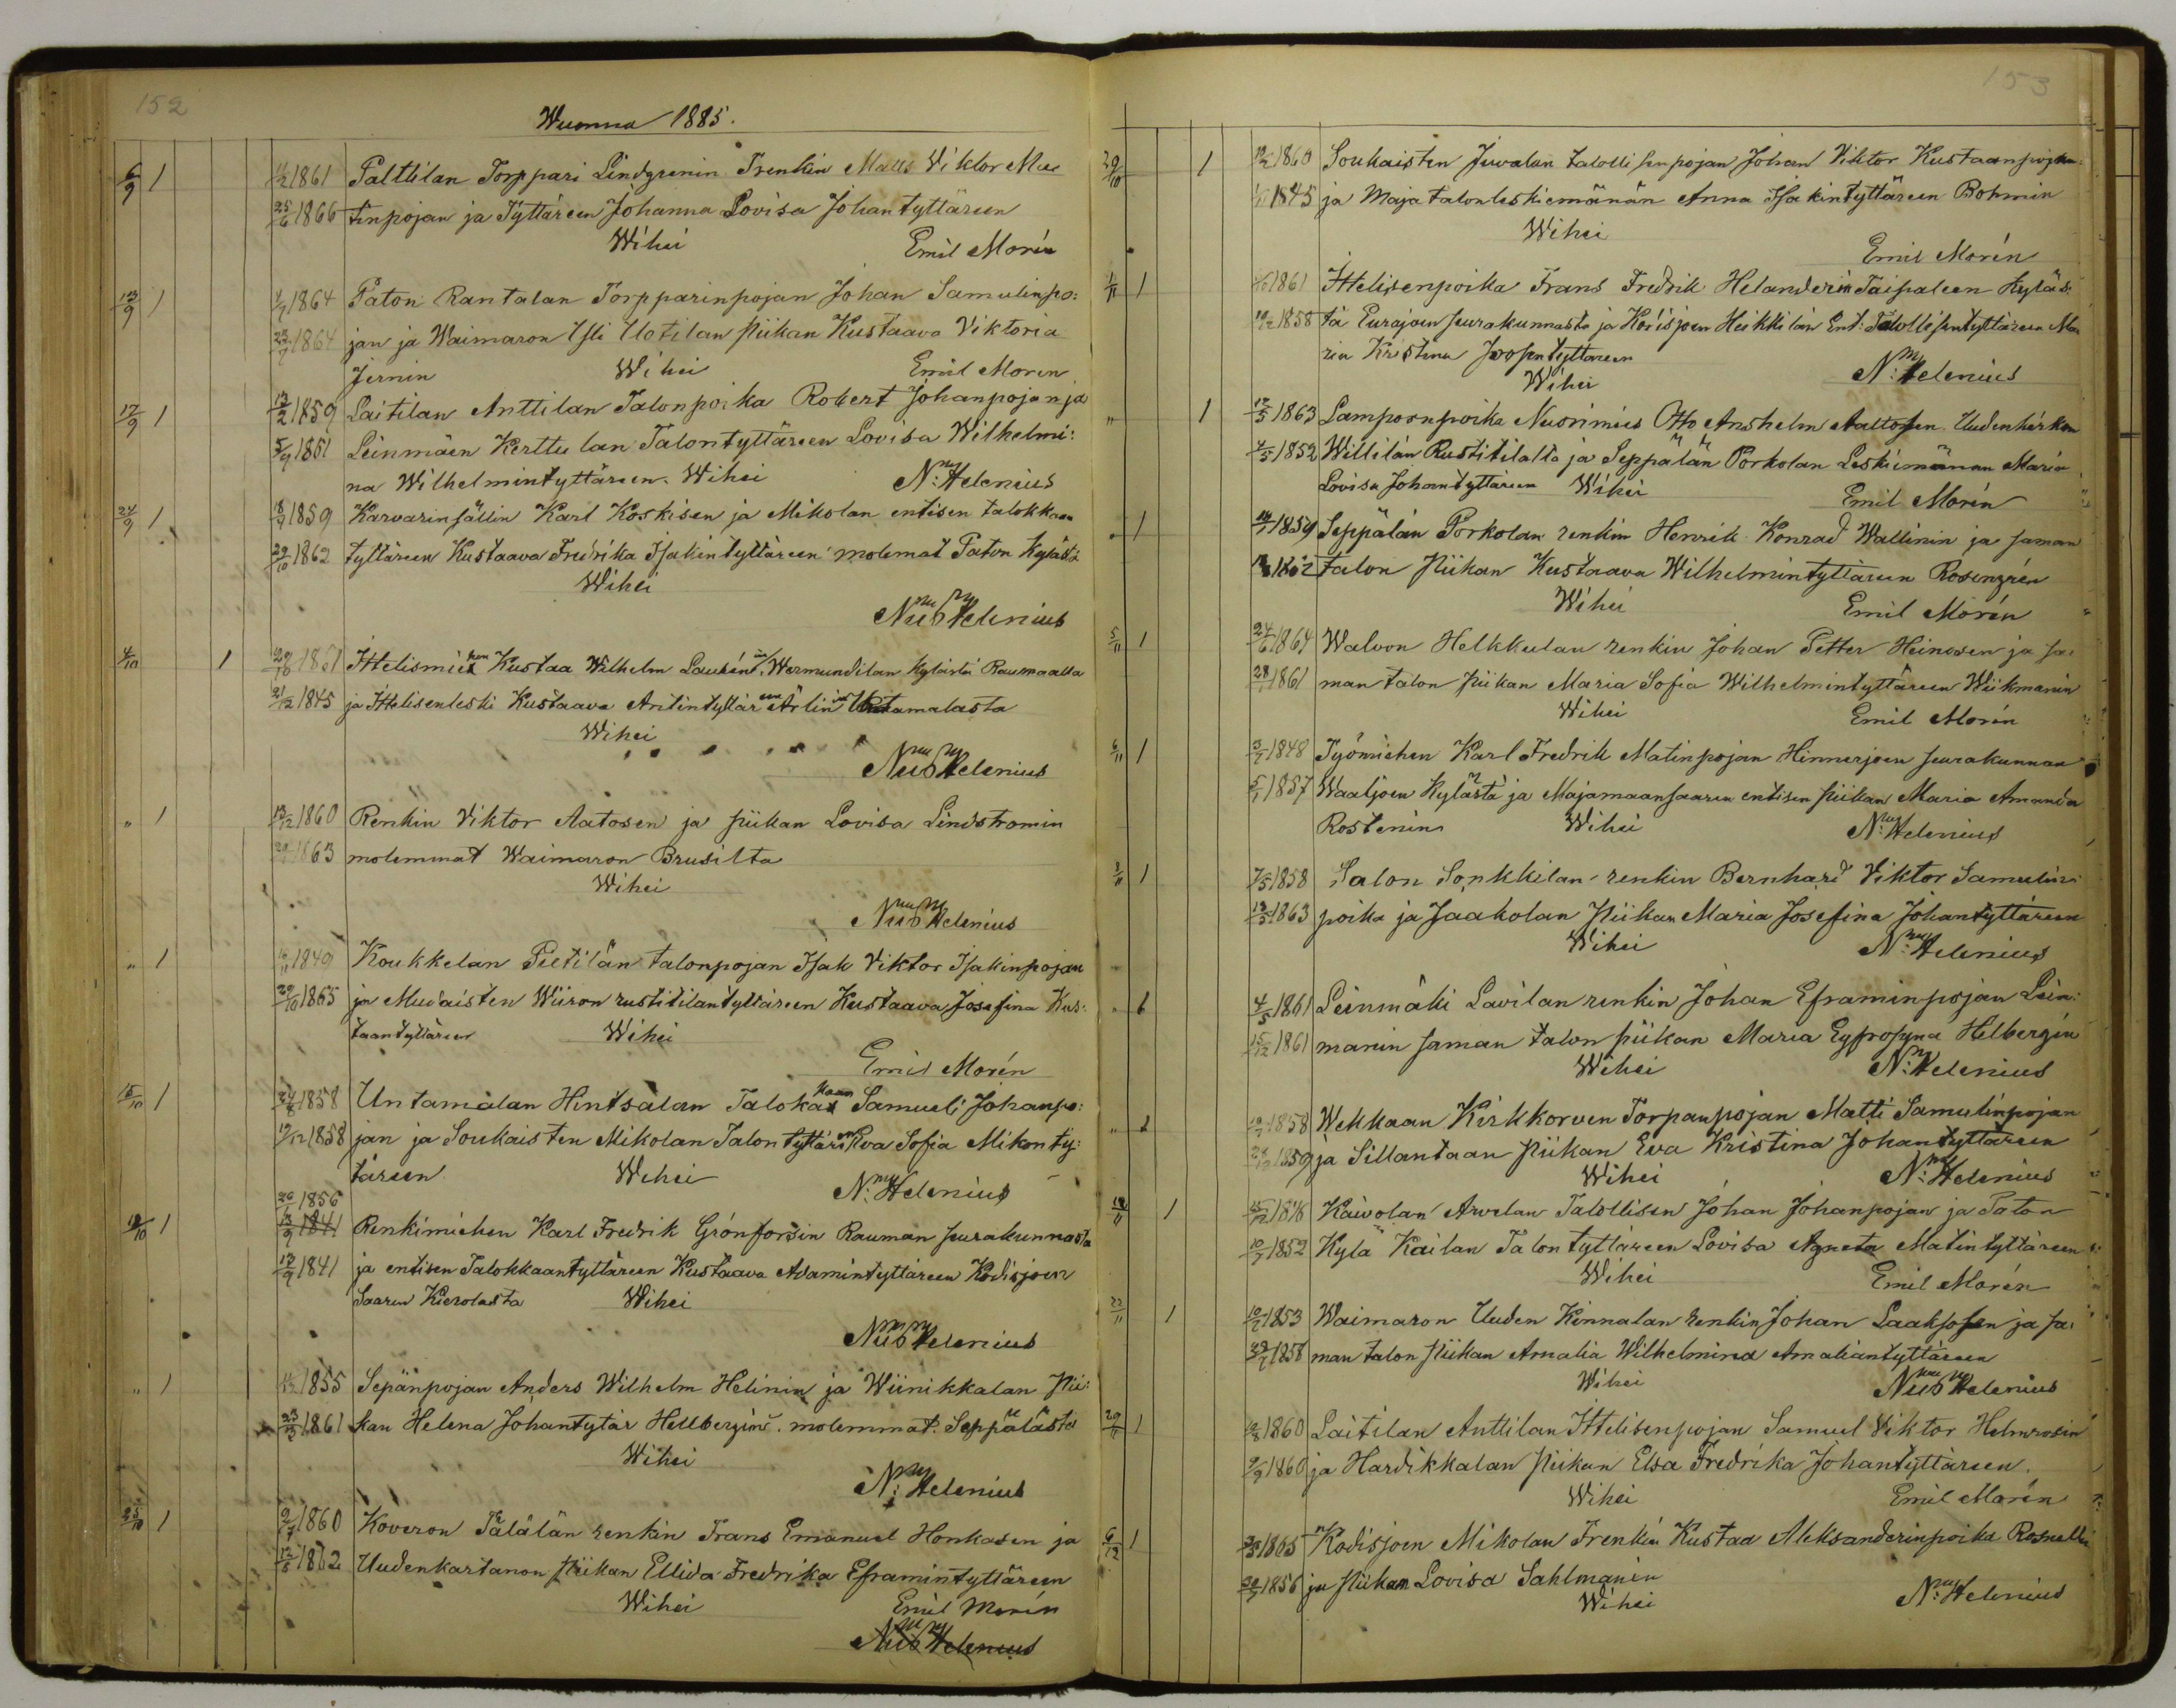 152
Wuonna 1885.
6/9 1 1861 Palttilan Torppari Lindgrenin Trenkin Matts Viktor Mar
25/6 1866 tinpojan ja Tyttäreen Johanna Lovisa Johantyttäreen
Wihei Emil Morén
13/9 1 1864 Paton Rantalan Torpparinpojan Johan Samulinpo:
1864 jan ja Waimaron Yli Uotilan piikan Kustaava Viktoria
Jernin Wihei Emil Moren
17/9 1 1859 Laitilan Anttilan Talonpoika Robert Johanpojan ja
5/9 1851 Leinmäen Kerttulan Talontyttäreen Lovisa Wilhelmi:
na Wilhelmintyttäreen. Wihei N: Helenius
24/9 1 1859 Karvarinsällin Karl Koskisen ja Mikolan entisen talokkaan
29/10 1862 tyttäreen Kustaava Fredrika Isakintyttäreen molemat Paton Kylästä
Wihei
Nus Helenius
4/10 1 Ittelismiehen Kustaa Wilhelm Laurénin, Wermundilan Kylästä Raumaalta
21/12 1845 ja Ittelisenleski Kustaava Antintyttäreen Arlinin Untamalasta
Wihei
Nus Helenius
„ 1 13/12 1860 Renkin Viktor Aatosen ja piikan Lovisa Lindstromin
1863 molemmat Waimaron Brusilta
Wihei
Nus Helenius
„ 1 1849 Koukkelan Pietilän talonpojan Isak Viktor Isakinpojan
29/10 1865 ja Mudaisten Wiiron rustitilantyttäreen Kustaava Josefina Kus:
taantyttäreen Wihei
Emil Morén
15/10 1 24/8 1858 Untamalan Hintsalan Talokkaan Samueli Johanpo:
19/12 1858 jan ja Soukaisten Mikolan Talontyttären Eva Sofia Mikonty:
täreen Wihei N: Helenius
1856
18/10 1 13/9 1841 Renkimiehen Karl Fredrik Grönforsin Rauman seurakunnasta
13/9 1841 ja entisen Talokkaantyttäreen Kustaava Adamintyttäreen Kodisjoen
Saaren Kierolasta Wihei
Nus Helenius
„ 1 1855 Sepänpojan Anders Wilhelm Helinin ja Wiinikkalan Pii:
1861 kan Helena Johantytär Hellbergin. molemmat Seppälästä
Wihei
N: Helenius
25/10 1 2/7 1860 Koveron Tälälän renkin Frans Emanuel Honkasen ja
1862 Uudenkartanon piikan Ellida Fredrika Eframintyttäreen
Wihei Emil Morén
Nus Helenius
153
29/10 1 1860 Soukaisten Juvalan talollisenpojan Johan Viktor Kustaanpojan
1845 ja Majatalonleskiemänän Anna Isakintyttäreen Bohmin
Wihei
Emil Morén
1/11 1 1861 Ittelisenpoika Frans Fredrik Helanderin Taipaleen Kyläs:
1858 tä Eurajoen seurakunnasta ja Kodisjoen Heikkilän Ent: Talollisentyttäreen Ma
ria Kristina Joosentyttareen
Wihei N: Helenius
„ 1 1863 Lampornpoika Nuorimies Otto Anshelm Aaltosen Uudenkirkon
4/5 1852 Willilän Rustitilalta ja Seppälän Porkolan Leskiemänän Maria
Lovisa Johantyttäreen Wihei
Emil Morén
„ 1 1859 Seppälän Porkolan renkin Henrik Konrad Wallinin ja saman
talon Piikan Kustaava Wilhelmintyttäreen Rosengrén
Wihei Emil Morén
5/11 1 24/6 1864 Walvon Helkkulan renkin Johan Petter Heinosen ja sa:
1861 man talon Piikan Maria Sofia Wilhelmintyttäreen Wiikmanin
Wihei Emil Morén
6/11 1 1848 Työmiehen Karl Fredrik Matinpojan Hinnerjoen seurakunnan
1857 Waaljoen Kylästä ja Majamaansaaren entisen piikan Maria Amanda
Rostenin Wihei N: Helenius
8/11 1 7/5 1858 Salon Sonkkilan renkin Bernhard Viktor Samulin:
13/5 1863 poika ja Jaakolan Piikan Maria Josefina Johantyttäreen
Wihei N: Helenius
„ 1 4/5 1861 Leinmäki Lavilan renkin Johan Eframinpojan Lein:
15/12 1861 manin saman talon piikan Maria Eyfrosyna Helbergin
Wihei N: Helenius
„ 1 1858 Wekkaan Kirkkorven Torpanpojan Matti Samulinpojan
1859 ja Sillantaan Piikan Eva Kristina Johantyttäreen
Wihei N: Helenius
1 Kaivolan Arvelan Talollisen Johan Johanpojan ja Paton
10/7 1852 Kylä Kailan Talontyttäreen Lovisa Agneta Matintyttäreen
Wihei Emil Morén
22/11 1 1853 Waimaron Uuden Kinnalan renkin Johan Laaksosen ja sa:
1858 man talon Piikan Amalia Wilhelmina Amaliantyttäreen
Wihei Nus Helenius
29/11 1 1860 Laitilan Anttilan Ittelisenpojan Samuel Viktor Helmrosin
9/9 1860 ja Hardikkalan Piikan Elsa Fredrika Johantyttäreen.
Wihei Emil Morén
6/12 1 1865 Kodisjoen Mikolan Trenkin Kustaa Aleksanderinpoika Rosnelli
1856 ja Piikan Lovisa Sahlmanin
Wihei N: Helenius